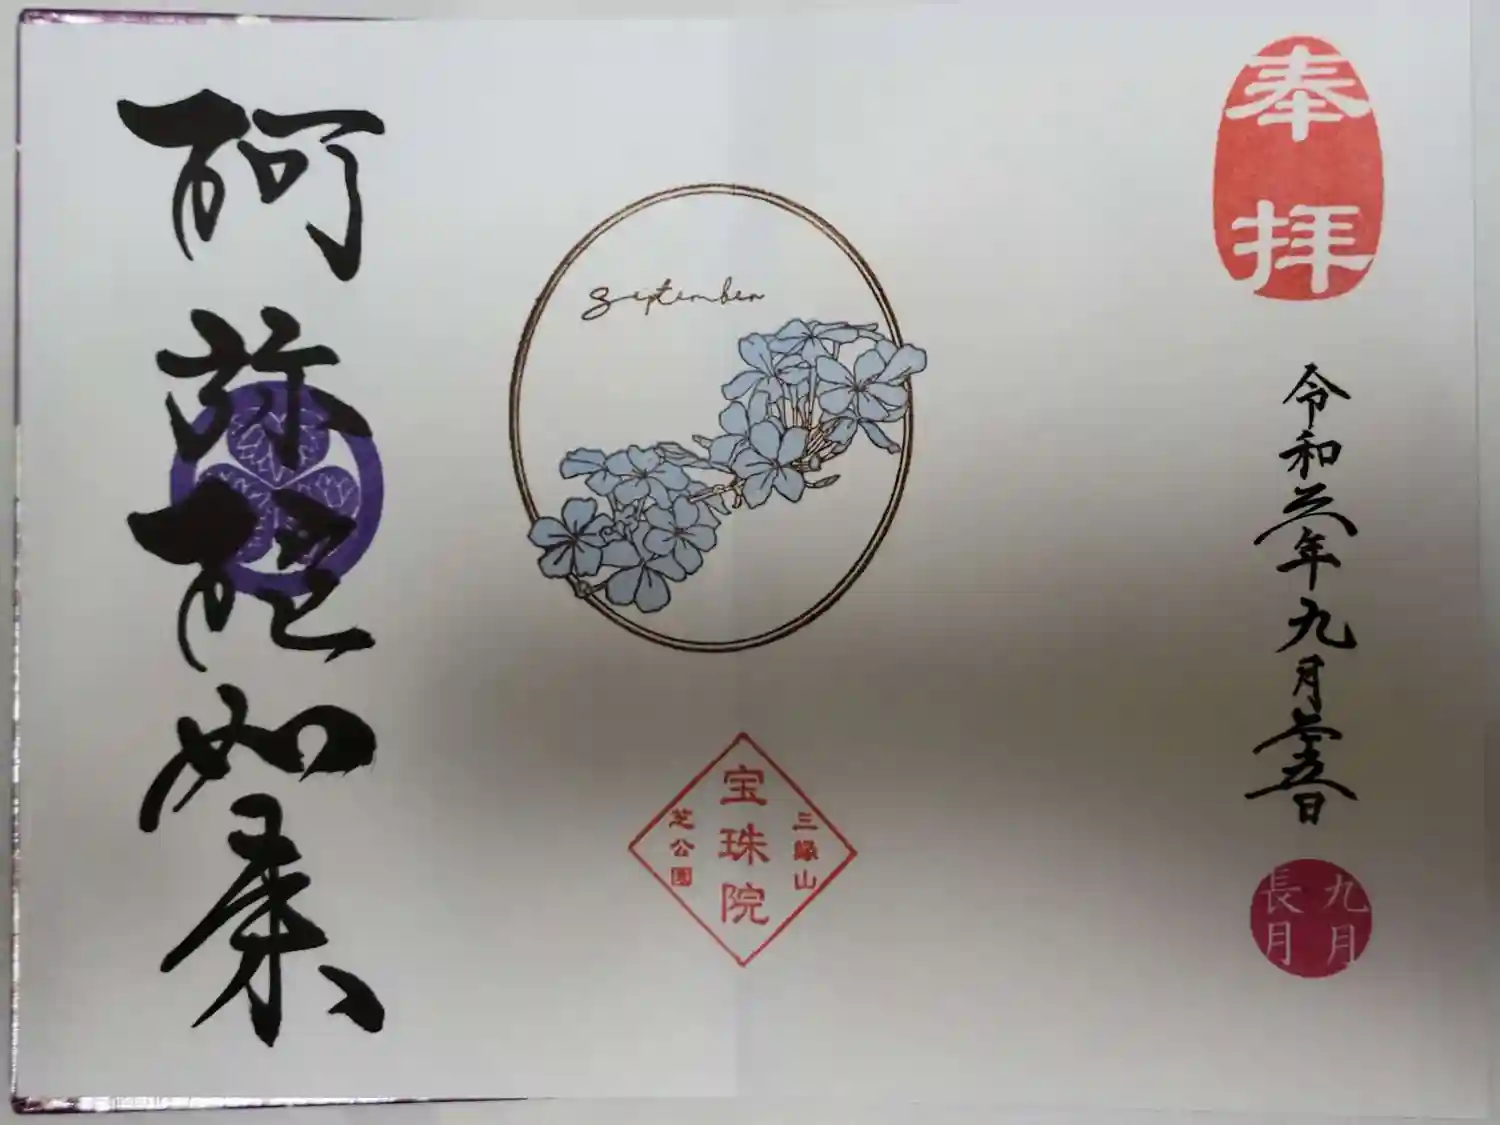 奉拝
令和三年九月十五日
九月
長月
September
三縁山
宝珠院
芝公園
阿弥陀如来